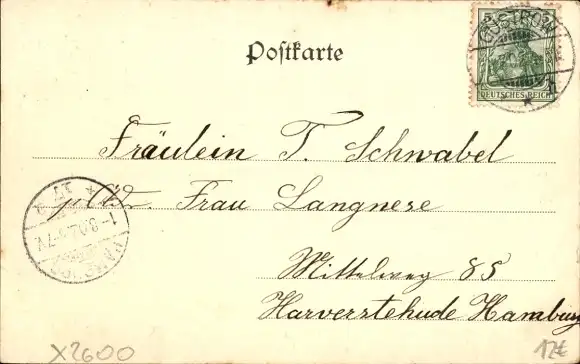 Postkarte
GÜSTROW
DEUTSCHES REICH
Fräulein T. Schwabel
Frau Langnese
Mittelweg 85
Harverstehude Hamburg
HAMBURG
X2600
12€